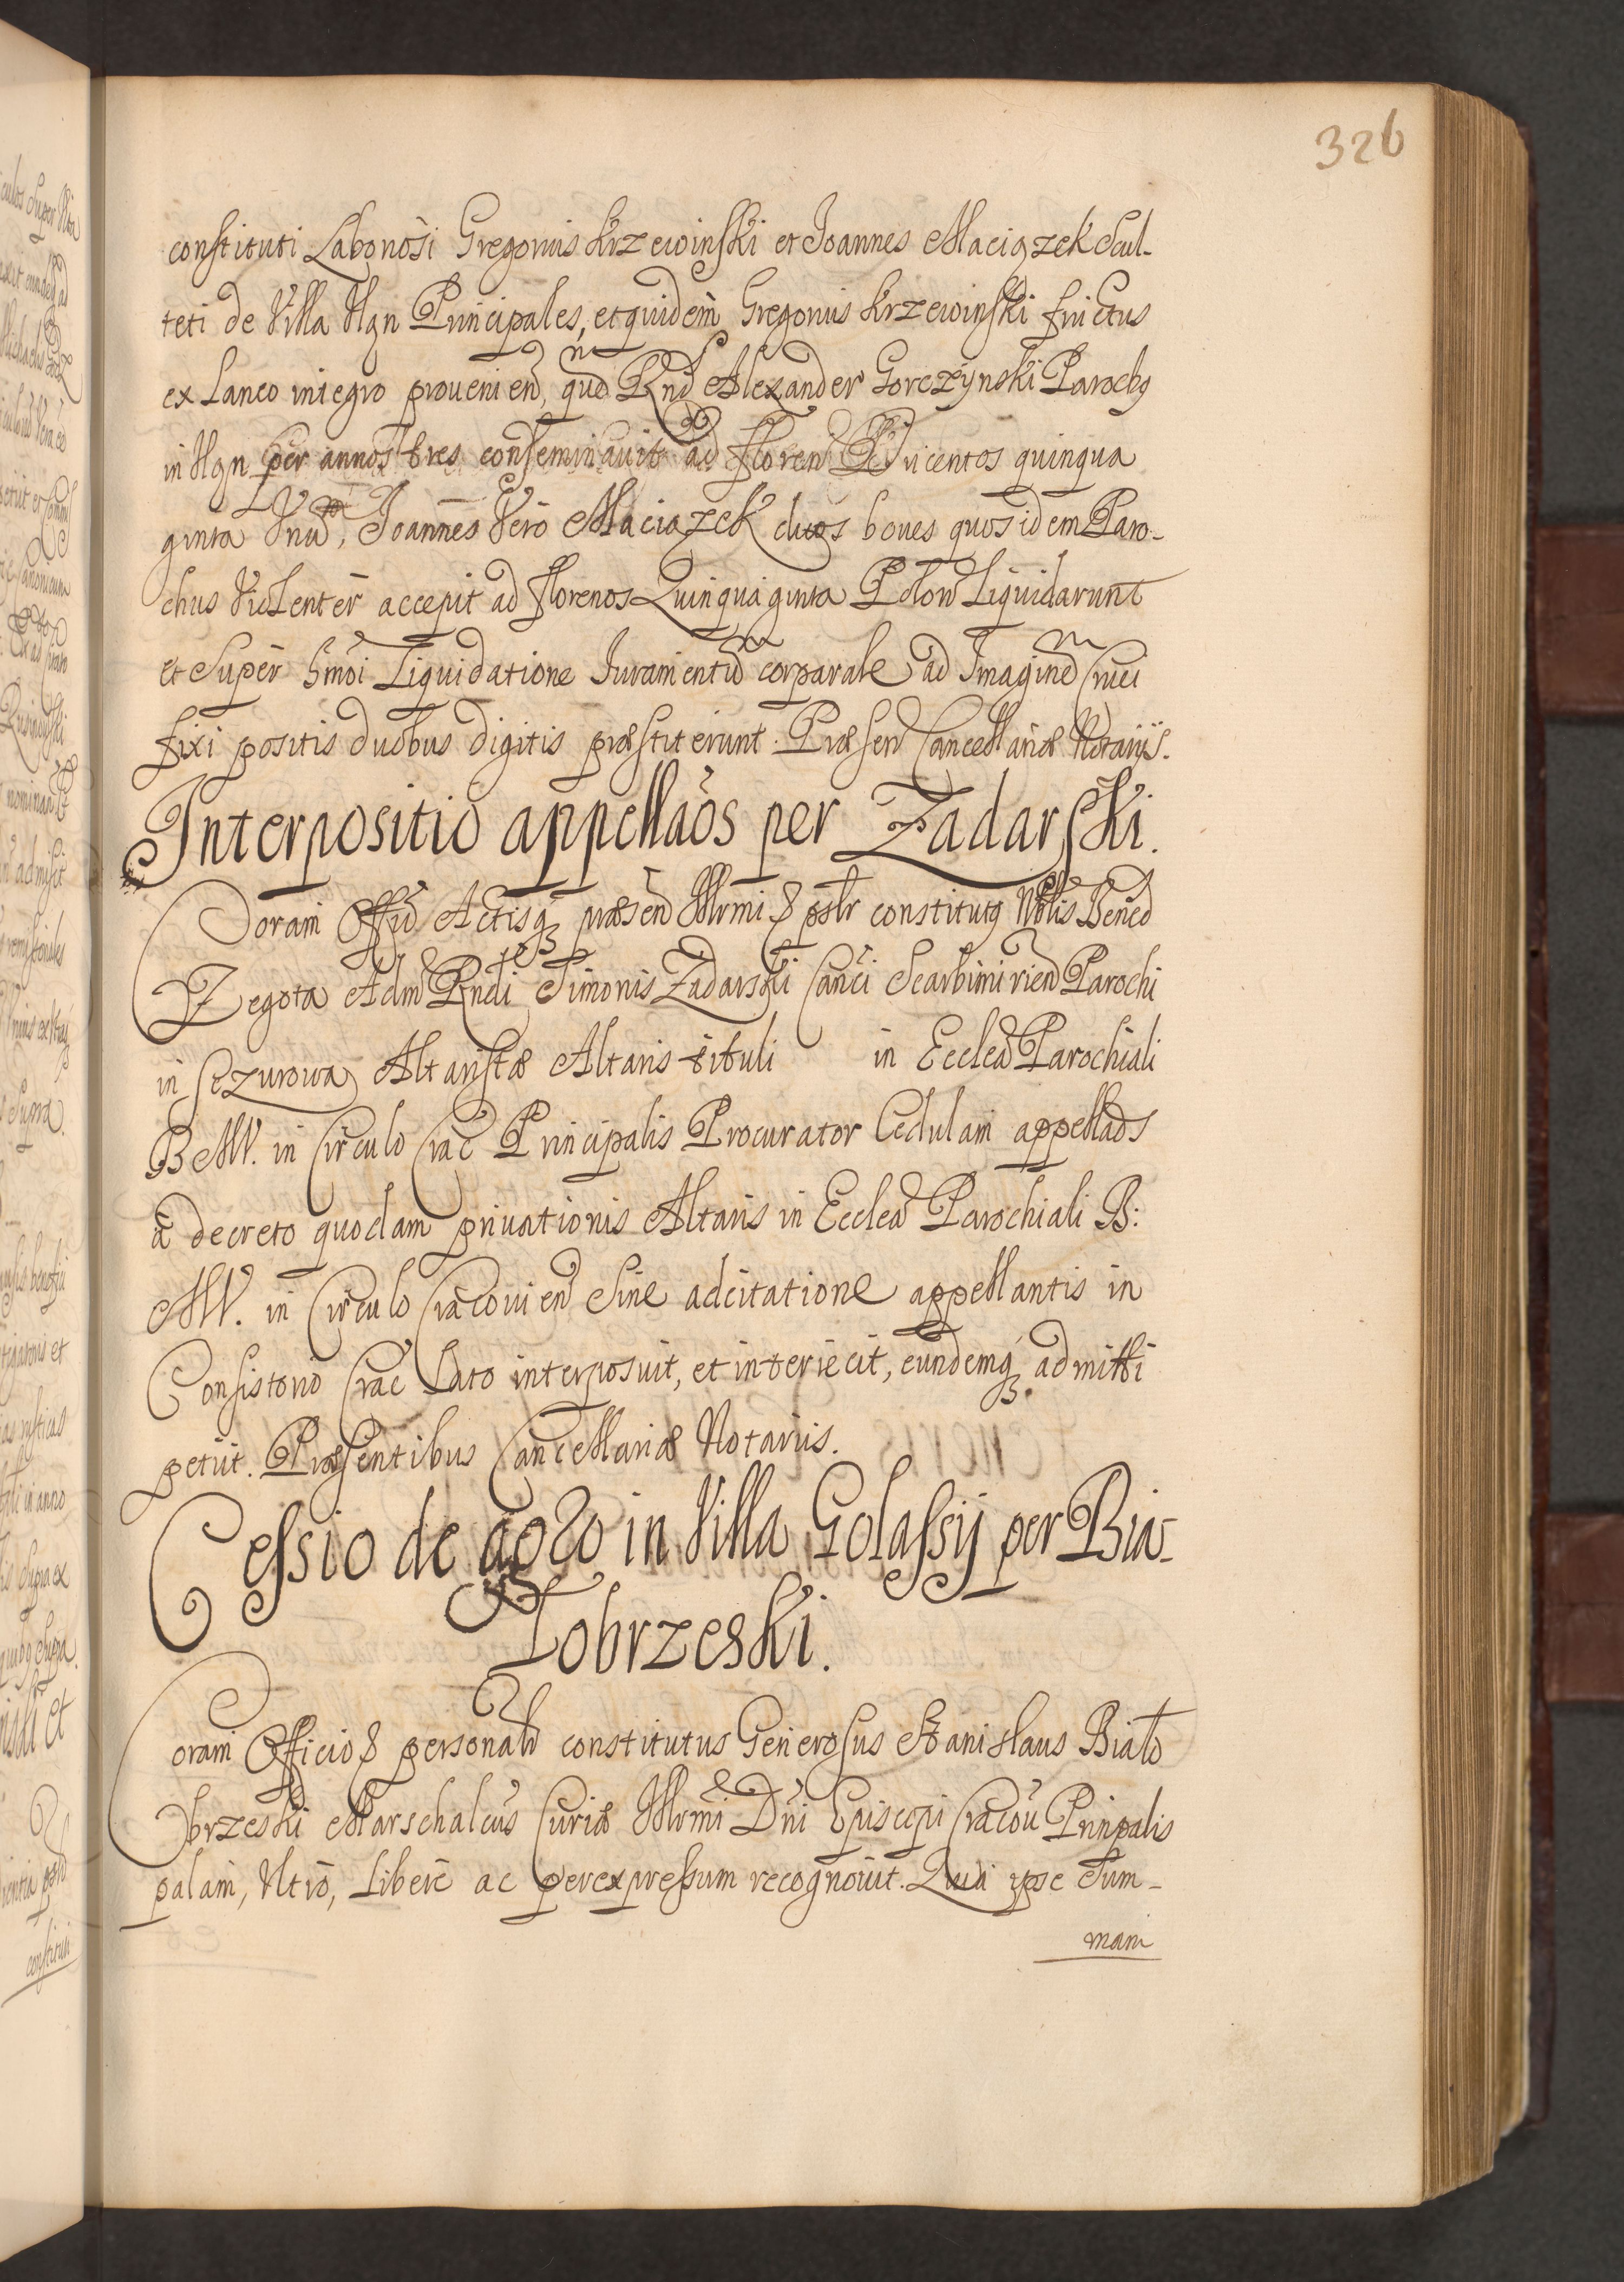 326
constituti Laboriosi Gregorius Krzewinski et Joannes Maciązek Scul-
teti de Villa Ilgn Principales, et quidem Gregorius Krzewinski fructus
ex Laneo integro provenien, quẽ Rnd Alexander Gorczynski Parochꝯ
in Ilgn per annos tres conseminavit ad Floren Ducentos quinqua
ginta Unũ, Joannes Vero Maciązek duos boves quos idem Paro-
chus Violenter accepit ad florenos Quinquaginta Polon Liquidarunt
et Super hmõi Liquidatione Juramentũ corporale ad Imaginẽ Cruci
fixi positis duobus digitis præstiterunt. Præsen Cancellariæ Notarijs.
Interpositio appellaõs per Zadarski.
Coram Offio Actisqꝫ præsen Illrmi & pslr constitutꝯ Nblis Bened
Zegota Adm Rndi Simonis Zadarski Canci Scarbimirien Parochi
in Sczurowa Altaristæ Altaris tituli in Ecclea Parochiali
B MV. in Circulo Crac Principalis Procurator Cedulam appellaõs
à decreto quodam privationis Altaris in Ecclea Parochiali B:
MV. in Circulo Cracovien Sine adcitatione appellantis in
Consistorio Crac Lato interposuit, et interiecit, eundemqꝫ admitti
petiit. Præsentibus Cancellariæ Notariis.
Cessio de agro in Villa Golassij per Bia-
Lobrzeski.
Coram Officio & personalr constitutus Generosus Stanislaus Biało
brzeski Marschalcus Curiæ Illrmi Dni Episcopi Cracou Prinpalis
palam, Ultro, Libere ac per expressum recognovit. Quia ipse Sum-
mam